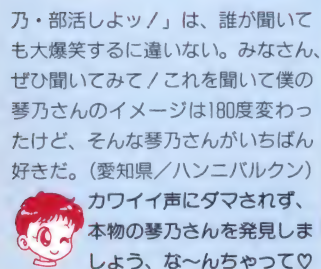 乃・部活しよッ/」は、誰が聞いて
も大爆笑するに違いない。みなさん、
ぜひ聞いてみて/これを聞いて僕の
琴乃さんのイメージは180度変わっ
たけど、そんな琴乃さんがいちばん
好きだ。(愛知県/ハンニバルクン)
カワイイ声にダマされず、
本物の琴乃さんを発見しま
しょう、な〜んちゃって♡